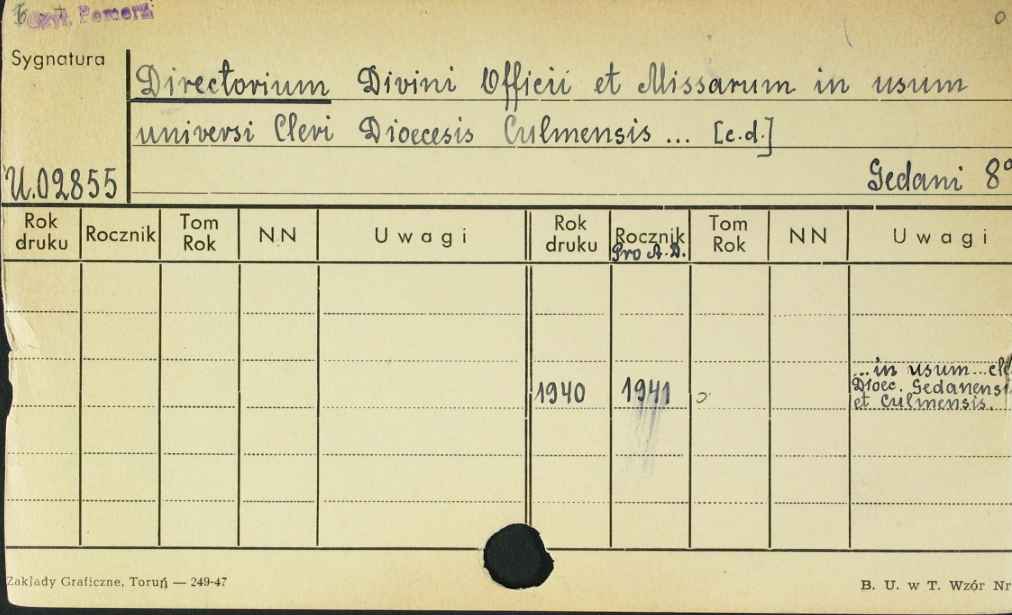 Czyt. Pomorz.
Sygnatura
Directorium Divini Officii et Missarum in usum
universi Cleri Dioecesis Culmensis ... [c.d.]
U.02855
Gedani 8°
Rok druku Rocznik Tom Rok NN Uwagi Rok druku Rocznik Pro A.D. Tom Rok NN Uwagi
1940 1941 ...in usum...cle
Dioec. Gedanensi
et Culmensis.
Zakłady Graficzne, Toruń — 249-47
B. U. w T. Wzór Nr